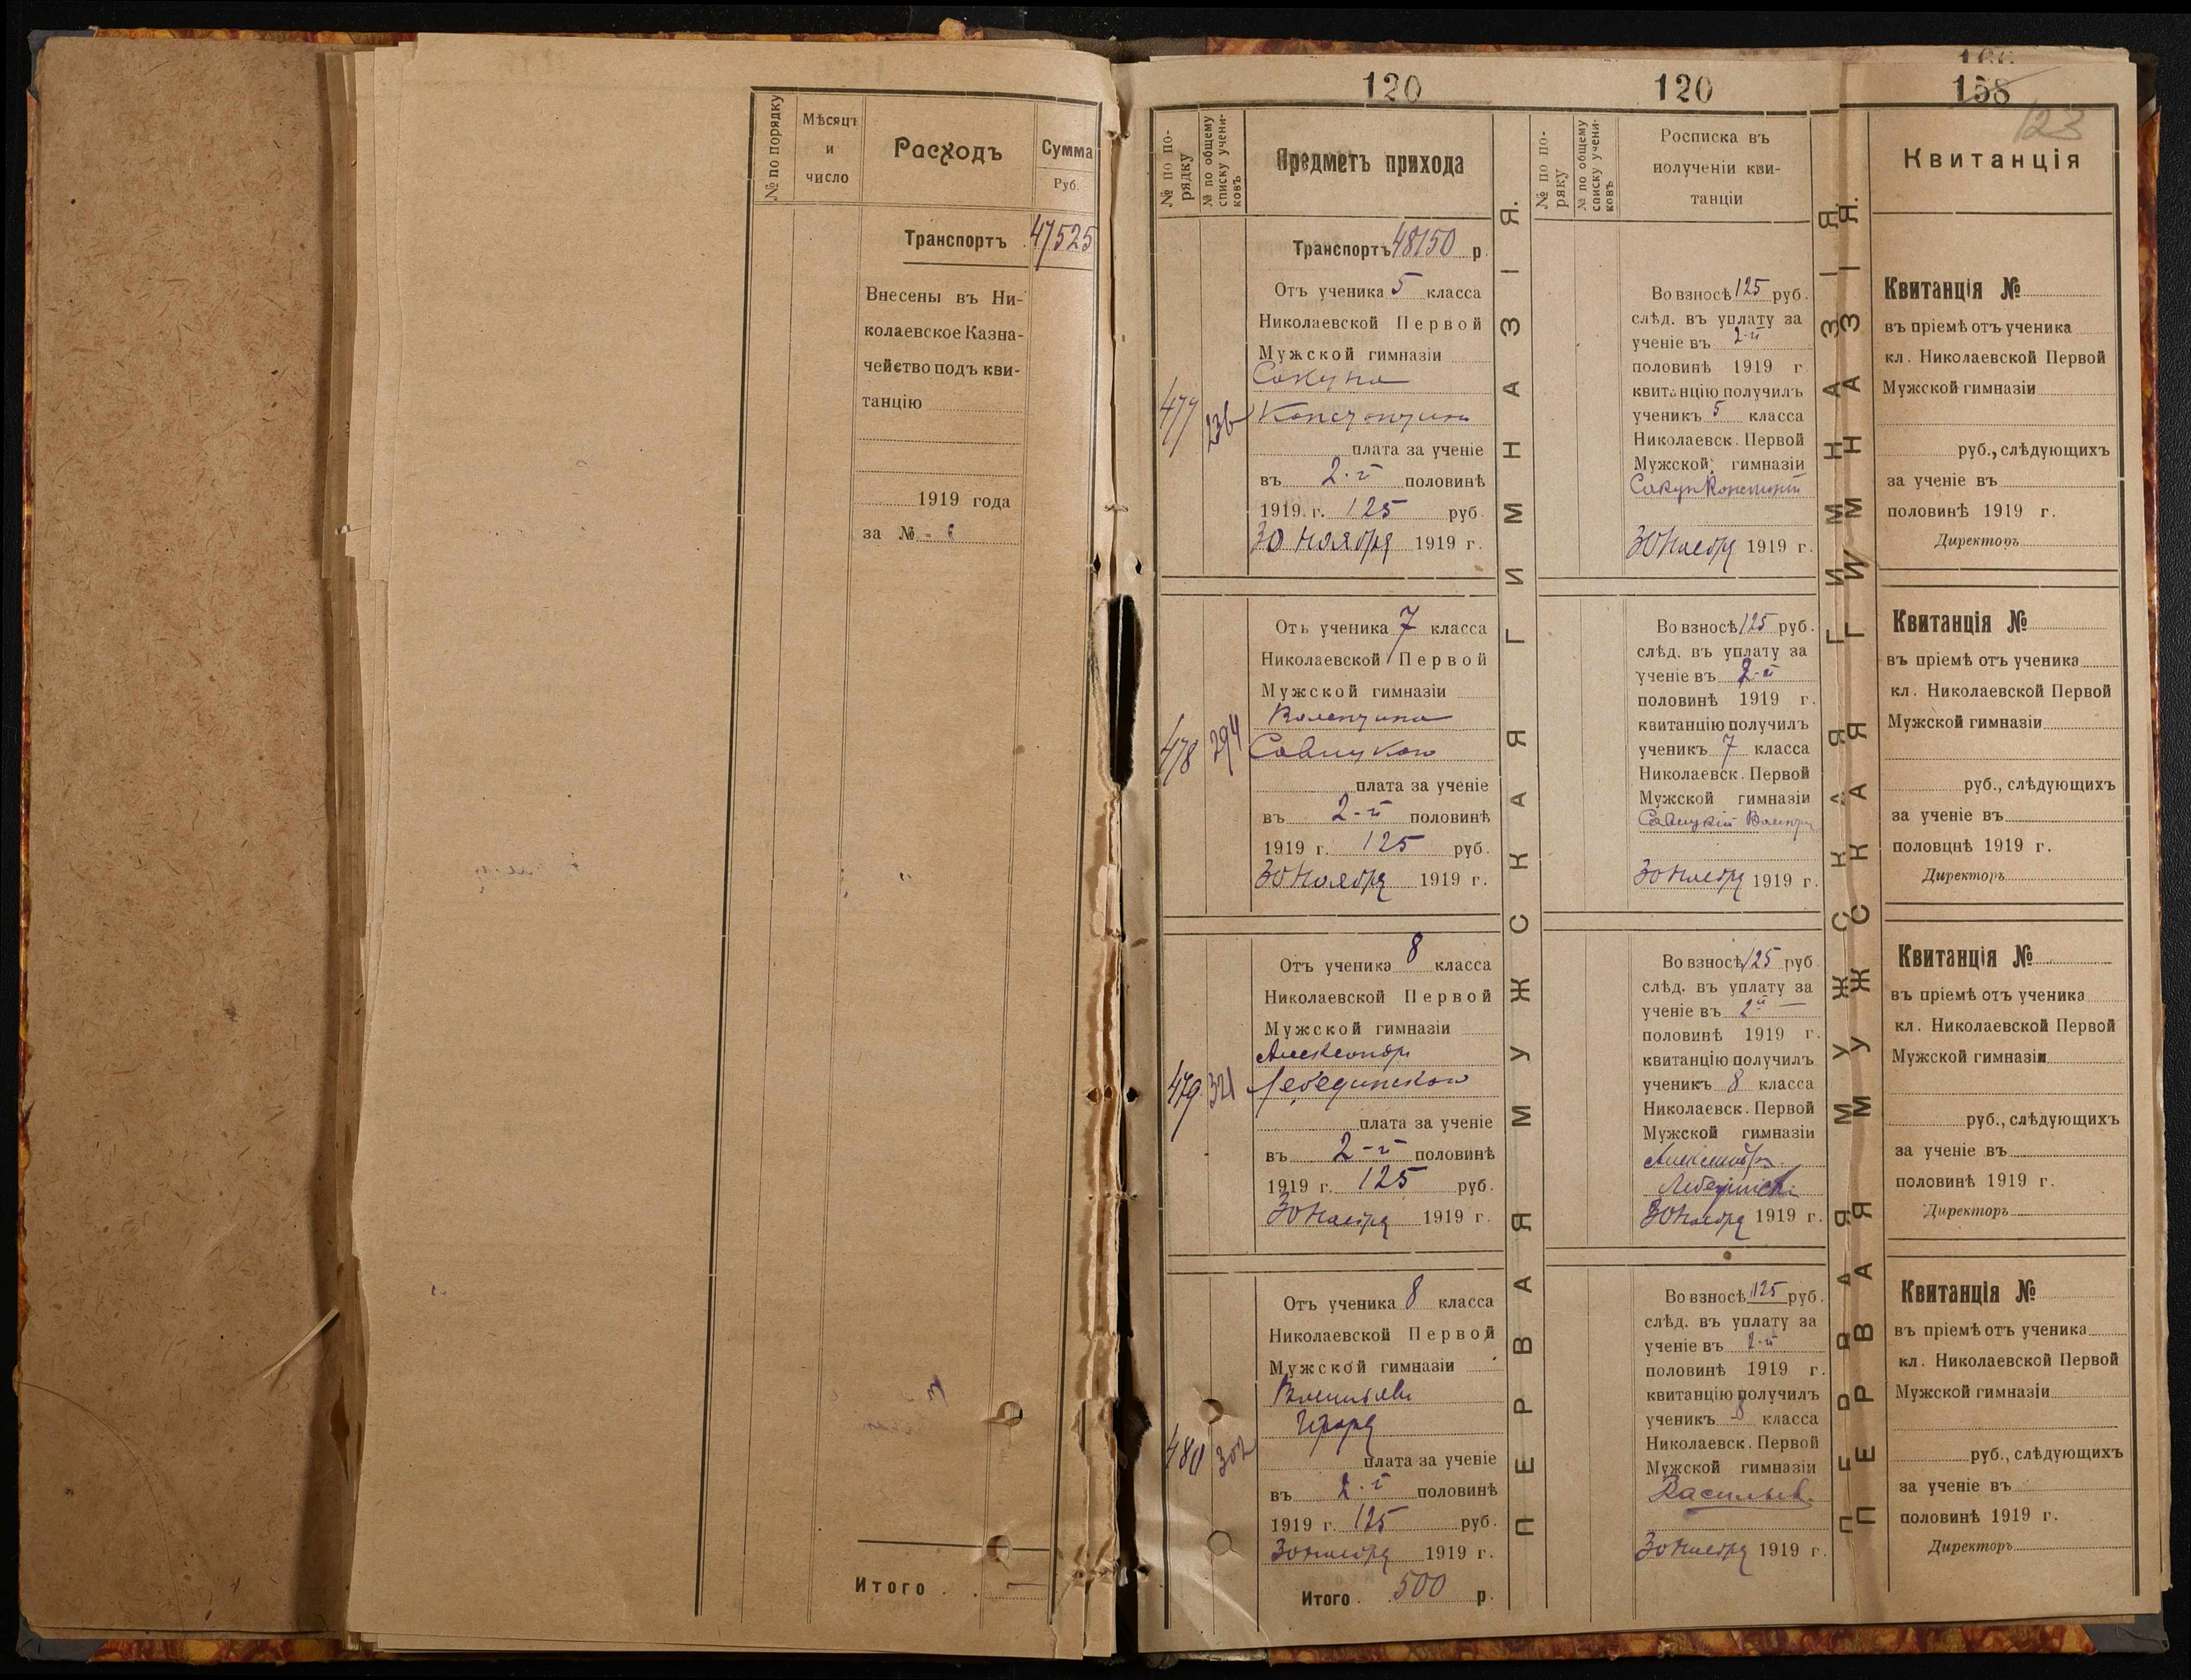 № по порядку
Мѣсяцъ
и
число
Расходъ
Сумма
Руб.
Транспортъ 47525
Внесены въ Ни-
колаевское Казна-
чейство подъ кви-
танцію
1919 года
за №
Итого . .
120
№ по по-
рядку
№ по общему
списку учени-
ковъ
Предметъ прихода
Транспортъ 48150 р.
Отъ ученика 5 класса
Николаевской Первой
Мужской гимназіи
Сакуна
477 236
плата за ученіе
въ 2-й половинѣ
1919 г. 125 руб.
30 Ноября 1919 г.
Отъ ученика 7 класса
Николаевской Первой
Мужской гимназіи
Валентина
478 294 Савицкого
плата за ученіе
въ 2-й половинѣ
1919 г. 125 руб.
30 Ноября 1919 г.
Отъ ученика 8 класса
Николаевской Первой
Мужской гимназіи
Александр
479 321 Лебединского
плата за ученіе
въ 2-й половинѣ
1919 г. 125 руб.
30 Ноября 1919 г.
Отъ ученика 8 класса
Николаевской Первой
Мужской гимназіи
480 302
плата за ученіе
въ 2-й половинѣ
1919 г. 125 руб.
30 Ноября 1919 г.
Итого . 500 р.
ПЕРВАЯ МУЖСКАЯ ГИМНАЗІЯ.
120
№ по по-
ряку
№ по общему
списку учени-
ковъ
Росписка въ
полученіи кви-
танціи
Во взносѣ 125 руб.
слѣд. въ уплату за
ученіе въ 2-й
половинѣ 1919 г.
квитанцію получилъ
ученикъ 5 класса
Николаевск. Первой
Мужской гимназіи
Сакун
30 Ноября 1919 г.
Во взносѣ 125 руб.
слѣд. въ уплату за
ученіе въ 2-й
половинѣ 1919 г.
квитанцію получилъ
ученикъ 7 класса
Николаевск. Первой
Мужской гимназіи
Савицкій
30 Ноября 1919 г.
Во взносѣ 125 руб.
слѣд. въ уплату за
ученіе въ 2й
половинѣ 1919 г.
квитанцію получилъ
ученикъ 8 класса
Николаевск. Первой
Мужской гимназіи
Александръ
30 Ноября 1919 г.
Во взносѣ 125 руб.
слѣд. въ уплату за
ученіе въ 2-й
половинѣ 1919 г.
квитанцію получилъ
ученикъ 8 класса
Николаевск. Первой
Мужской гимназіи
Васильев
30 Ноября 1919 г.
ПЕРВАЯ МУЖСКАЯ ГИМНАЗІЯ
ПЕРВАЯ МУЖСКАЯ ГИМНАЗІЯ.
166
158
123
Квитанція
Квитанція №
въ пріемѣ отъ ученика
кл. Николаевской Первой
Мужской гимназіи
руб., слѣдующихъ
за ученіе въ
половинѣ 1919 г.
Директоръ
Квитанція №
въ пріемѣ отъ ученика
кл. Николаевской Первой
Мужской гимназіи
руб., слѣдующихъ
за ученіе въ
половцнѣ 1919 г.
Директоръ
Квитанція №
въ пріемѣ отъ ученика
кл. Николаевской Первой
Мужской гимназіи
руб., слѣдующихъ
за ученіе въ
половинѣ 1919 г.
Директоръ
Квитанція №
въ пріемѣ отъ ученика
кл. Николаевской Первой
Мужской гимназіи
руб., слѣдующихъ
за ученіе въ
половинѣ 1919 г.
Директоръ